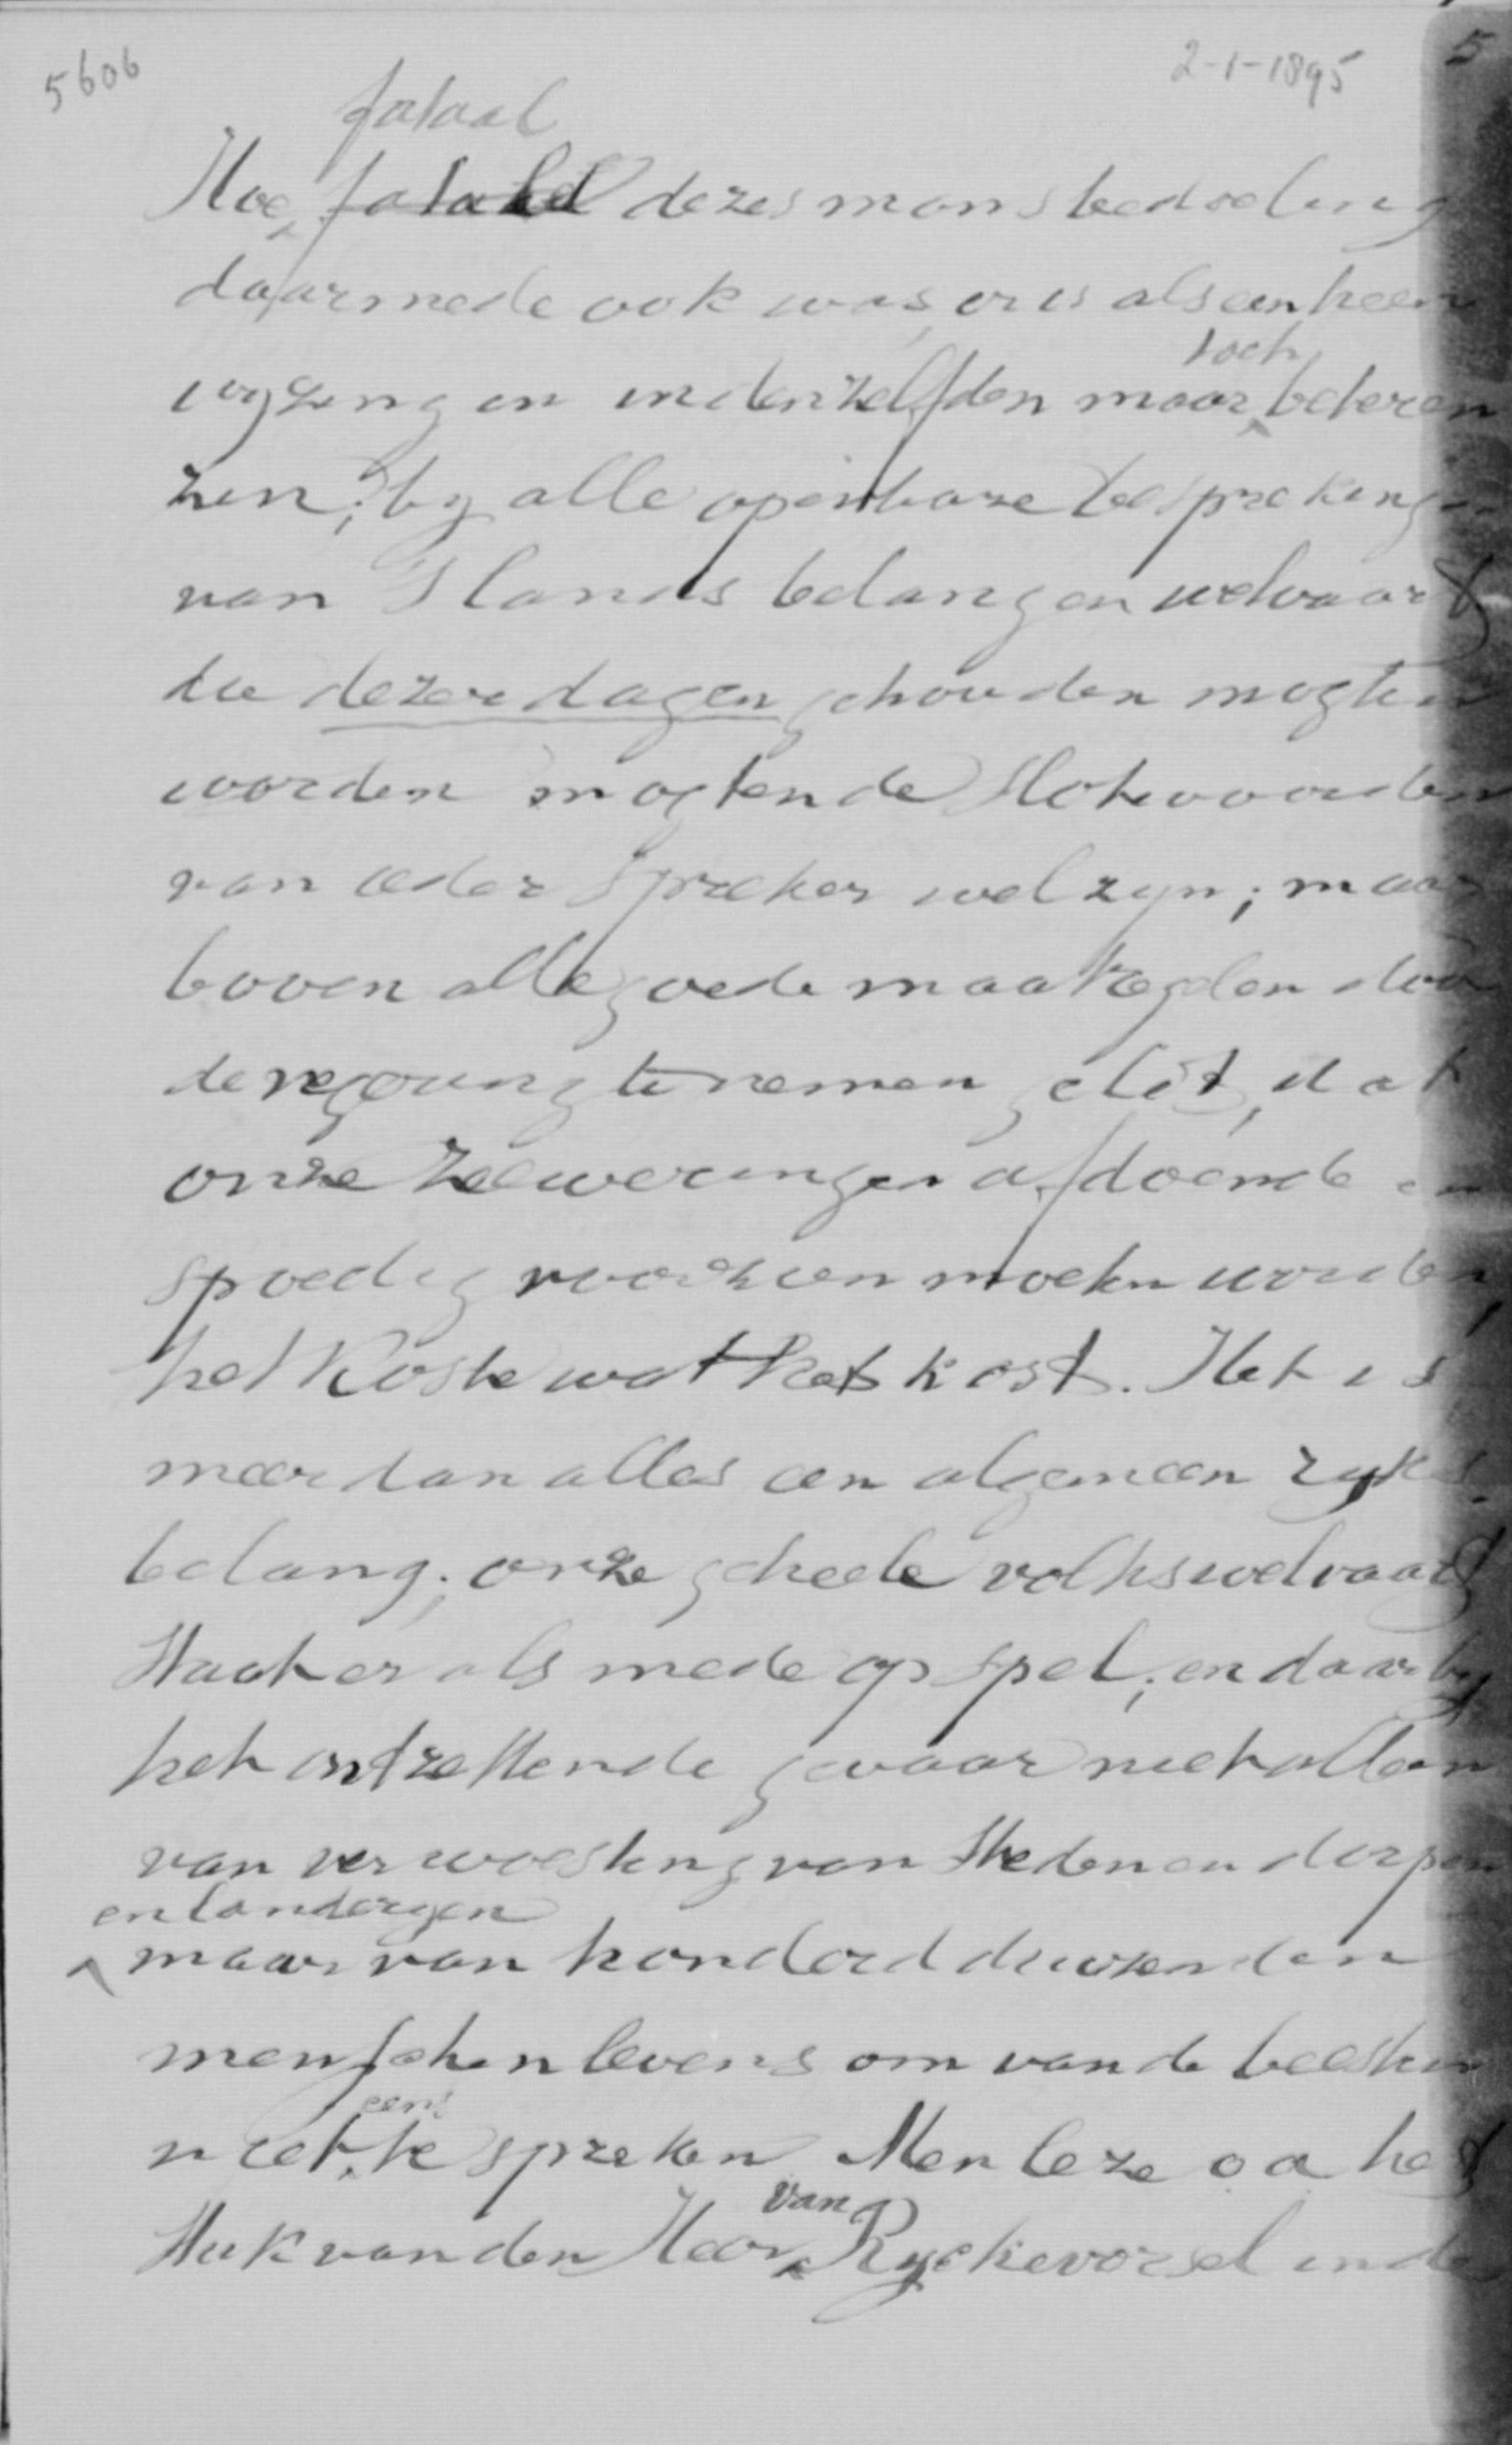 5606
2-1-1895
5
fataal
Hoe fatahd dezes mans bedoeling
daarmede ook was, er is als een heen
wyzing in denzelfden maar toch beteren
zin; by alle openbare besprekingen
van 's lands belangen welvaart
die dezer dagen gehouden mogten
worden mogten de slotwoorden
van ieder spreker wel zyn; maar
boven alle goede maatregelen door
de regering te nemen geldt, dat
onze zeeweringen afdoende en
spoedig voorzien moeten worden,
het koste wat het kost. Het is
meer dan alles een algemeen ryks
belang; onze geheele volkswelvaart
staat er als mede op spel; en daarby
het ontzettende gevaar niet alleen
van verwoesting van steden en dorpen
en landeryen
maar van honderdduizenden
menschenlevens om van de beesten
niet eens te spreken Men leze o a het
stuk van den Heer van Ryckevorsel in de